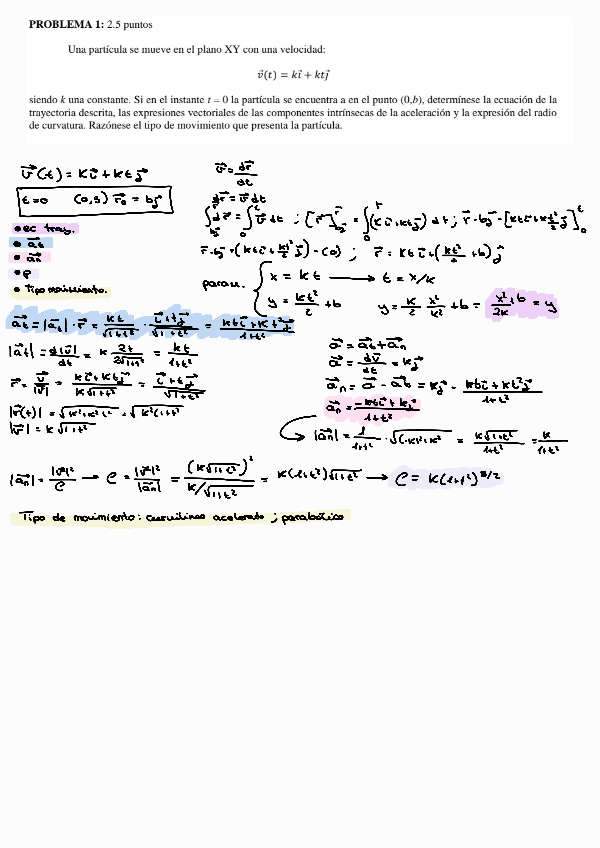 PROBLEMA 1: 2.5 puntos
Una partícula se mueve en el plano XY con una velocidad:
v⃗(t) = kı⃗ + ktȷ⃗
siendo k una constante. Si en el instante t = 0 la partícula se encuentra a en el punto (0,b), determínese la ecuación de la
trayectoria descrita, las expresiones vectoriales de las componentes intrínsecas de la aceleración y la expresión del radio
de curvatura. Razónese el tipo de movimiento que presenta la partícula.
v⃗(t) = kı⃗ + ktȷ⃗
v⃗ = dr⃗/dt
t=0 r⃗₀ = bȷ⃗
dr⃗ = v⃗ dt
∫dr⃗ = ∫v⃗ dt ; [r⃗] = ∫(kı⃗+ktȷ⃗) dt ; r⃗-bȷ⃗ = [ktı⃗+kt²/2 ȷ⃗]
• ec tray.
• a⃗t
• a⃗n
• ρ
• Tipo movimiento.
r⃗-bȷ⃗ = (ktı⃗+kt²/2 ȷ⃗) - (0) ; r⃗ = ktı⃗+(kt²/2 + b)ȷ⃗
param.
x = kt → t = x/k
y = kt²/2 + b
y = k/2 x²/k² + b = x²/2k + b = y
a⃗t = |a⃗t| · τ⃗ = kt/√1+t² · ı⃗+tȷ⃗/√1+t² = ktı⃗+kt²ȷ⃗/1+t²
|a⃗t| = d|v⃗|/dt = k 2t/2√1+t² = kt/√1+t²
a⃗ = a⃗t + a⃗n
a⃗ = dv⃗/dt = kȷ⃗
τ⃗ = v⃗/|v⃗| = kı⃗+ktȷ⃗/k√1+t² = ı⃗+tȷ⃗/√1+t²
a⃗n = a⃗ - a⃗t = kȷ⃗ - ktı⃗+kt²ȷ⃗/1+t²
a⃗n = -ktı⃗+kȷ⃗/1+t²
|v⃗(t)| = √k²+k²t² = √k²(1+t²)
|v⃗| = k√1+t²
|a⃗n| = 1/1+t² · = k√1+t²/1+t² = k/√1+t²
|a⃗n| = |v⃗|²/ρ → ρ = |v⃗|²/|a⃗n| = (k√1+t²)²/k/√1+t² = k(1+t²)√1+t² → ρ = k(1+t²)^3/2
Tipo de movimiento: curvilíneo acelerado ; parabólico